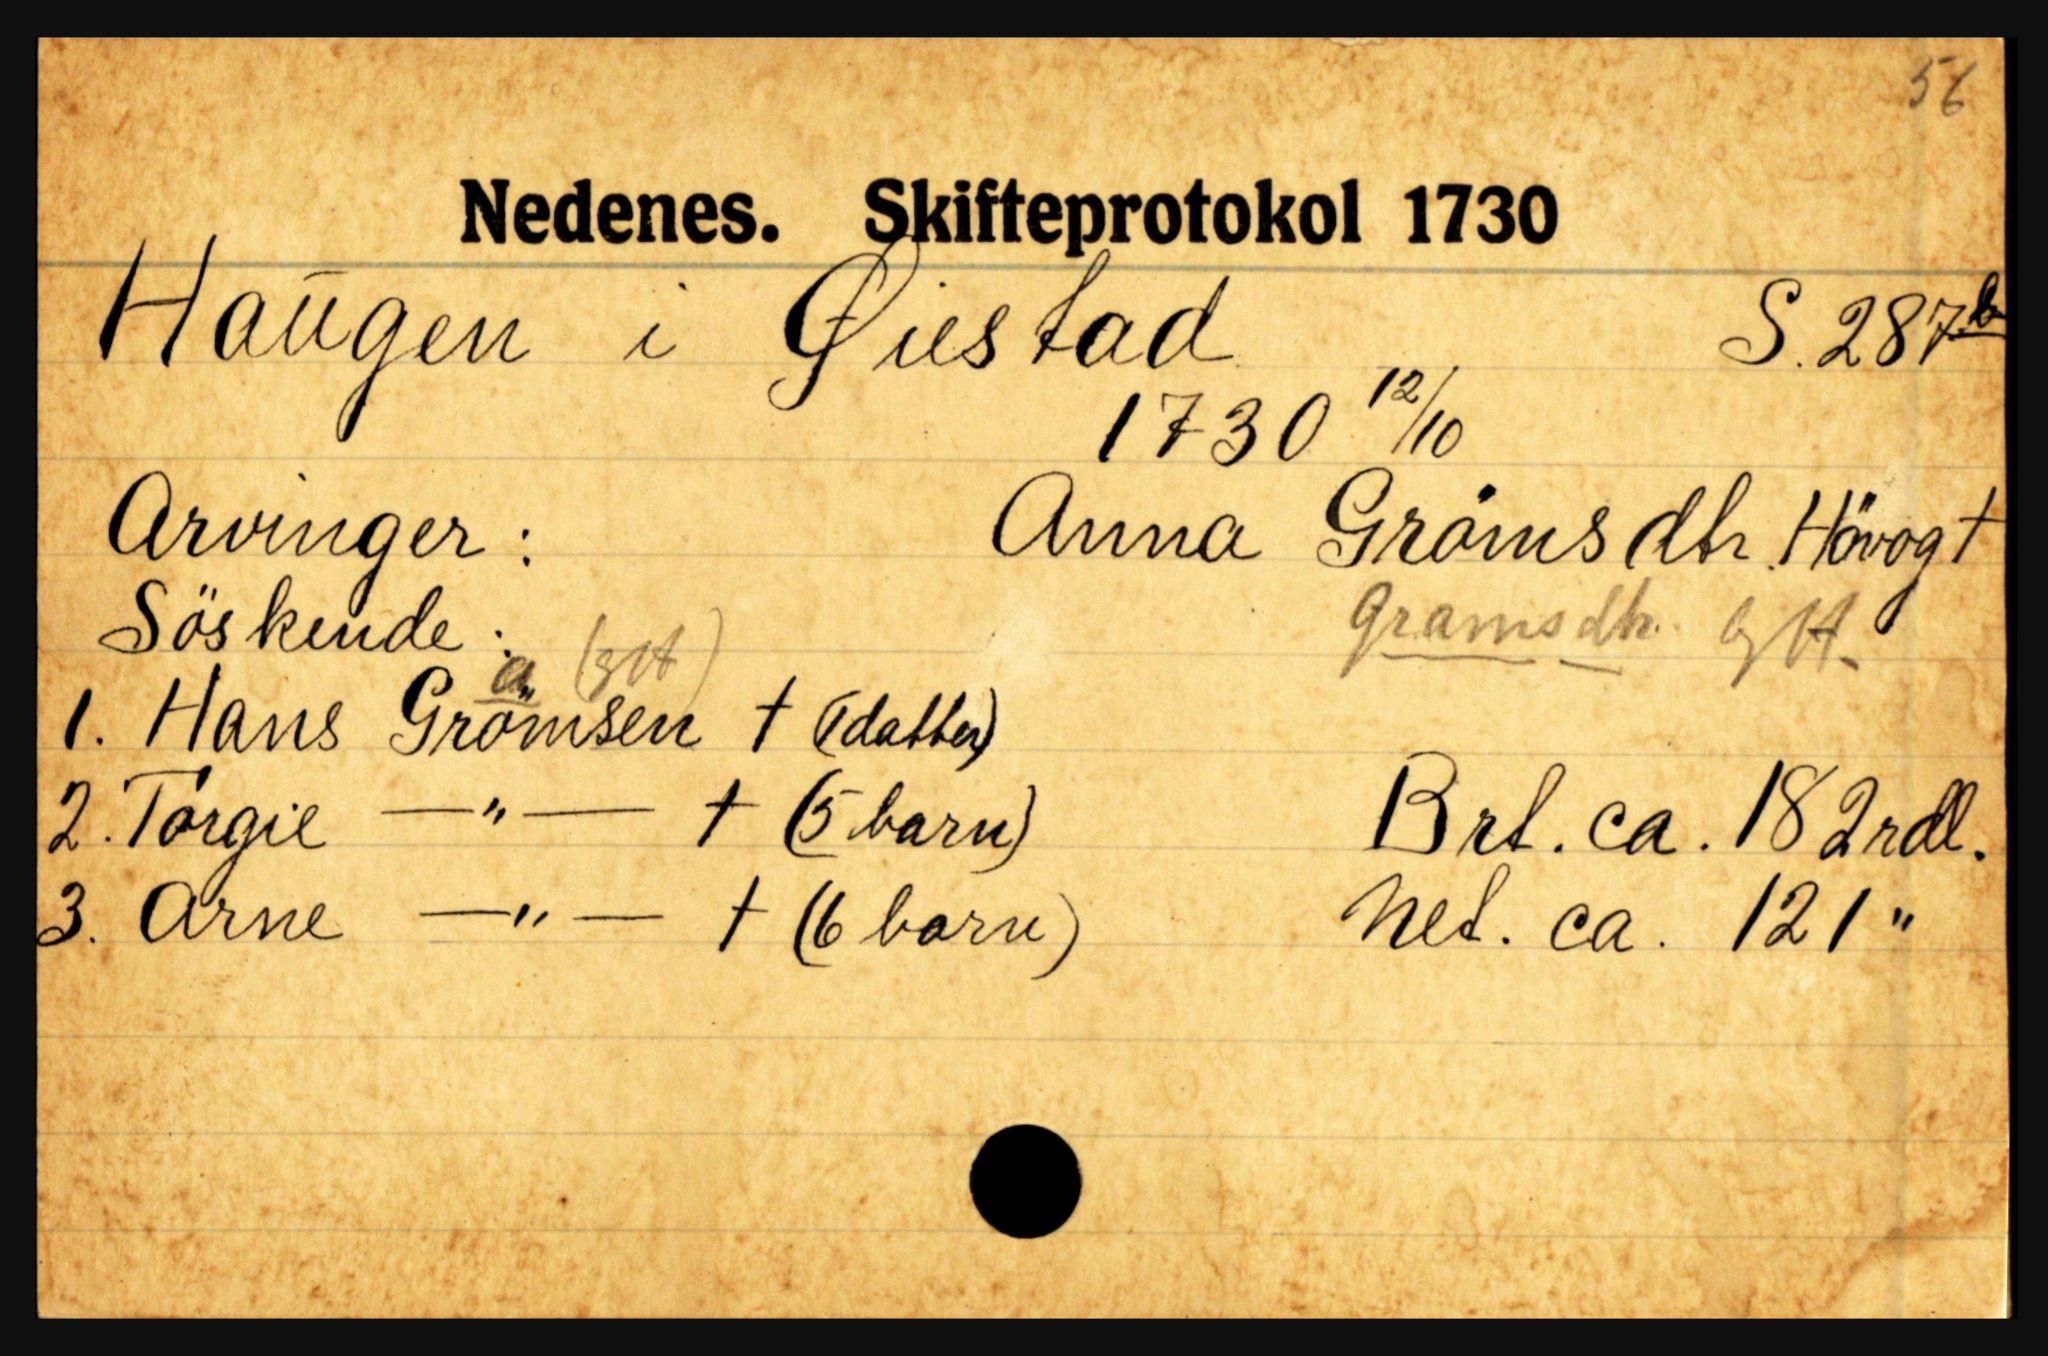 56
Nedenes. Skifteprotokol 1730
Haugen i Øiestad S. 287b
1730 12/10
Arvinger: Anna Grömsdtr. Hövogt
Söskende: Gramsdtr.
a
1. Hans Grömsen † (1 datter)
2. Torgie —"— † (5 barn) Brt. ca. 182 rdl.
3. Arne —"— † (6 barn) Net. ca. 121 "